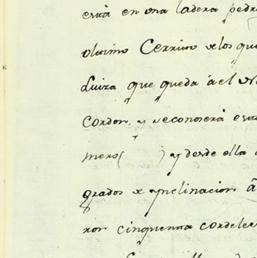 está en una ladera pedr
ultimo Cerrito de los qu
Luiza que queda á el
Cordon, y reconoserá
mero( ) y desde ella
grados de ynclinacion á
ron cinquenta cordele